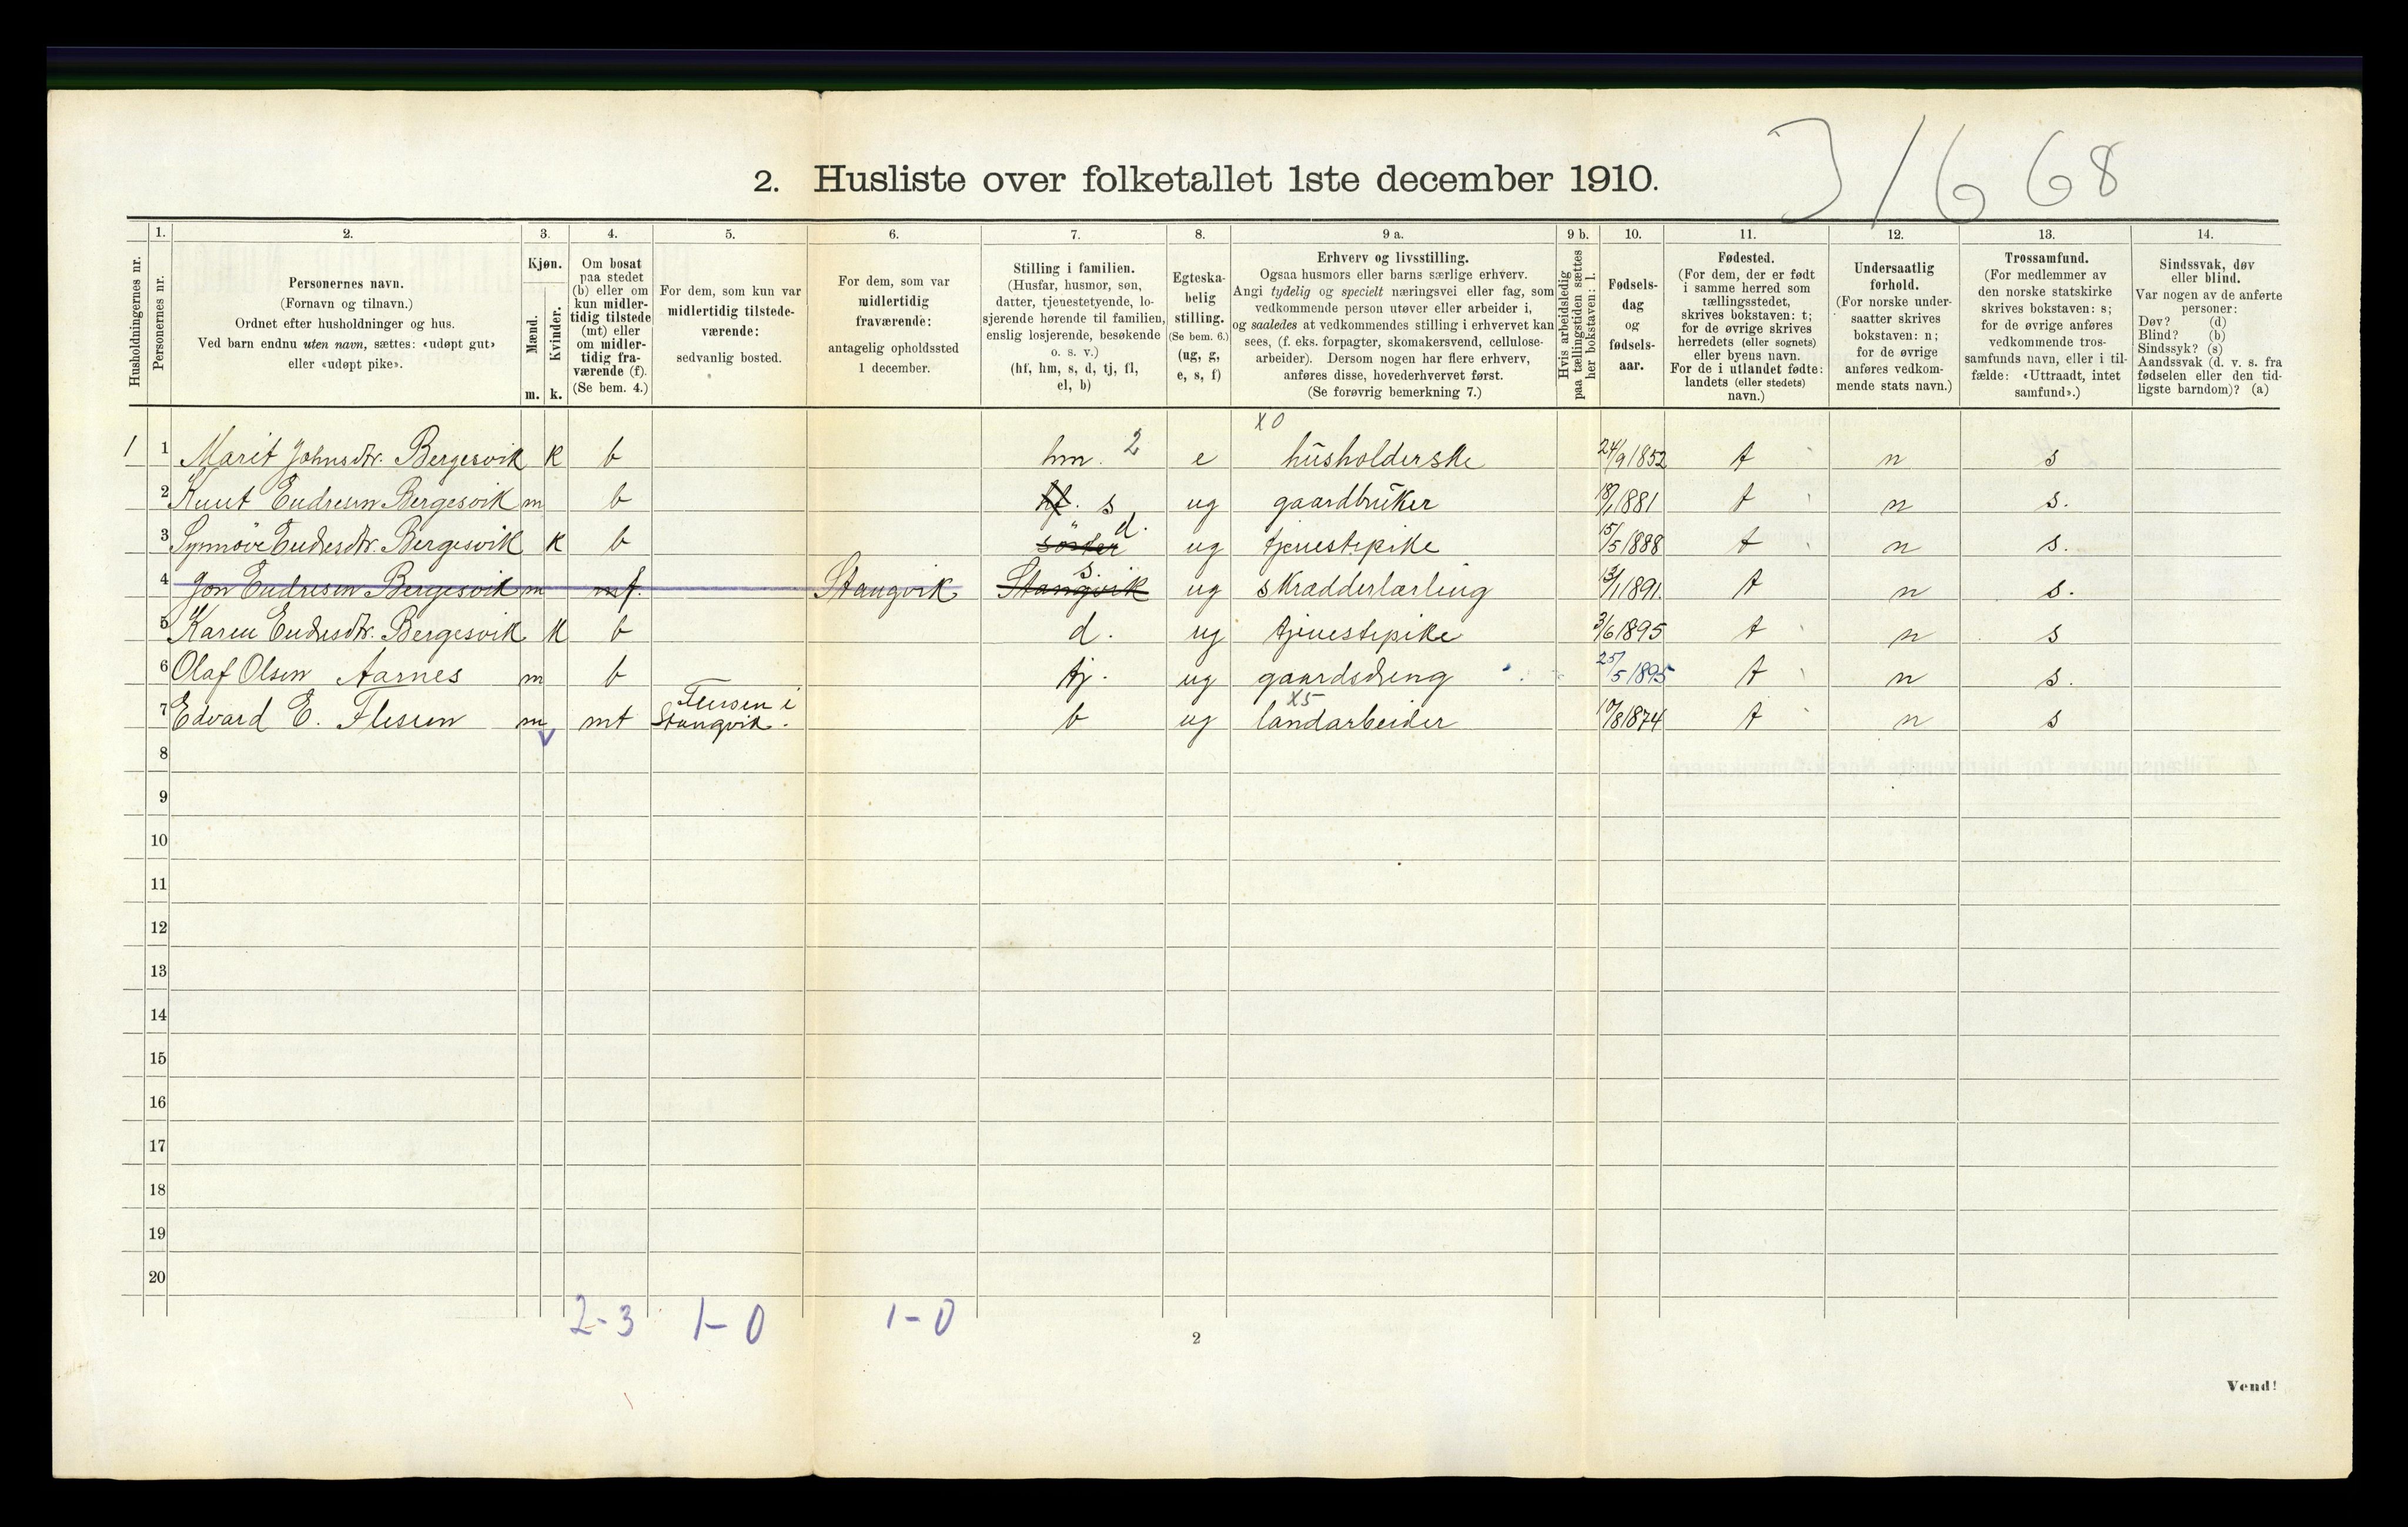 31668
2. Husliste over folketallet 1ste december 1910.
1. 2. 3. 4. 5. 6. 7. 8. 9 a. 9 b. 10. 11. 12. 13. 14.
Husholdningernes nr.
Personernes nr.
Personernes navn.
(Fornavn og tilnavn.)
Ordnet efter husholdninger og hus.
Ved barn endnu uten navn, sættes: «udøpt gut»
eller «udøpt pike».
Kjøn.
Mænd.
Kvinder.
m. k.
Om bosat
paa stedet
(b) eller om
kun midler-
tidig tilstede
(mt) eller
om midler-
tidig fra-
værende (f).
(Se bem. 4.)
For dem, som kun var
midlertidig tilstede-
værende:
sedvanlig bosted.
For dem, som var
midlertidig
fraværende:
antagelig opholdssted
1 december.
Stilling i familien.
(Husfar, husmor, søn,
datter, tjenestetyende, lo-
sjerende hørende til familien,
enslig losjerende, besøkende
o. s. v.)
(hf, hm, s, d, tj, fl,
el, b)
Egteska-
belig
stilling.
(Se bem. 6.)
(ug, g,
e, s, f)
Erhverv og livsstilling.
Ogsaa husmors eller barns særlige erhverv.
Angi tydelig og specielt næringsvei eller fag, som
vedkommende person utøver eller arbeider i,
og saaledes at vedkommendes stilling i erhvervet kan
sees, (f. eks. forpagter, skomakersvend, cellulose-
arbeider). Dersom nogen har flere erhverv,
anføres disse, hovederhvervet først.
(Se forøvrig bemerkning 7.)
Hvis arbeidsledig
paa tællingstiden sættes
her bokstaven: l.
Fødsels-
dag
og
fødsels-
aar.
Fødested.
(For dem, der er født
i samme herred som
tællingsstedet,
skrives bokstaven: t;
for de øvrige skrives
herredets (eller sognets)
eller byens navn.
For de i utlandet fødte:
landets (eller stedets)
navn.)
Undersaatlig
forhold.
(For norske under-
saatter skrives
bokstaven: n;
for de øvrige
anføres vedkom-
mende stats navn.)
Trossamfund.
(For medlemmer av
den norske statskirke
skrives bokstaven: s;
for de øvrige anføres
vedkommende tros-
samfunds navn, eller i til-
fælde: «Uttraadt, intet
samfund».)
Sindssvak, døv
eller blind.
Var nogen av de anførte
personer:
Døv? (d)
Blind? (b)
Sindssyk? (s)
Aandssvak (d. v. s. fra
fødselen eller den tid-
ligste barndom)? (a)
x0
1 1 Marit Johnsdtr. Bergesvik k b hm. 2 e husholderske 24/9 1852 t n s
2 Knut Endresen Bergesvik m b hf. s ug gaardbruker 18/1 1881 t n s.
3 Synnöve Endresdtr. Bergesvik k b söster d. ug tjenestepike 15/5 1888 t n s.
4 Jon Endresen Bergesvik m mf. Stangvik Stangvik s. ug skrædderlærling 13/1 1891. t n s.
5 Karen Endresdtr. Bergesvik k b d. ug tjenestepike 3/6 1895 t n s
6 Olaf Olsen Aarnes m b tj. ug gaardsdreng 25/5 1895 t n s.
x5
7 Edvard E. Flessen m mt Stangvik. b ug landarbeider 10/8 1874 t n s
8
9
10
11
12
13
14
15
16
17
18
19
20
2-3 1-0 1-0
2
Vend!